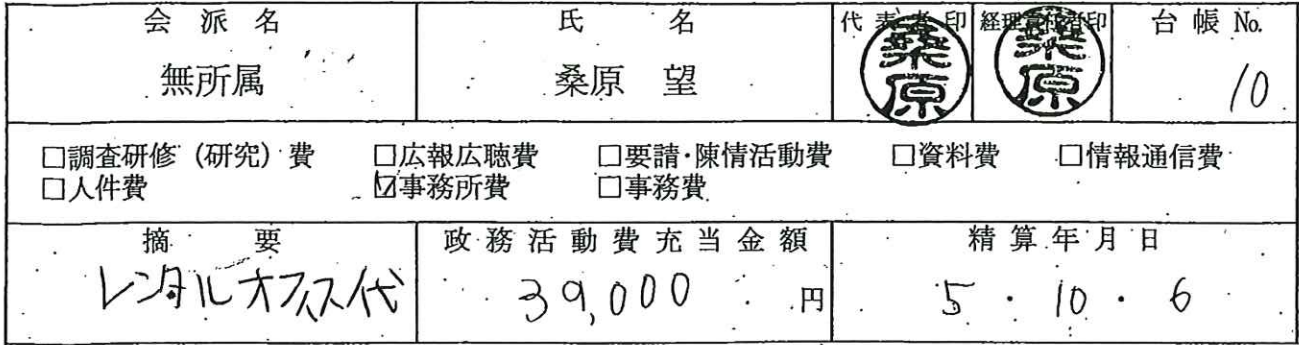 会派名 氏名 代表者印 経理責任者印 台帳No.
無所属 桑原 望 桑原 桑原 10
□調査研修（研究）費 □広報広聴費 □要請・陳情活動費 □資料費 □情報通信費
□人件費 ☑事務所費 □事務費
摘要 政務活動費充当金額 精算年月日
レンタルオフィス代 39,000 円 5・10・6